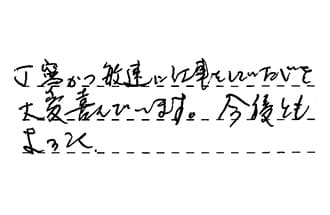 丁寧かつ敏速に仕事をしていただき
大変喜んでいます。今後とも
よろしく.